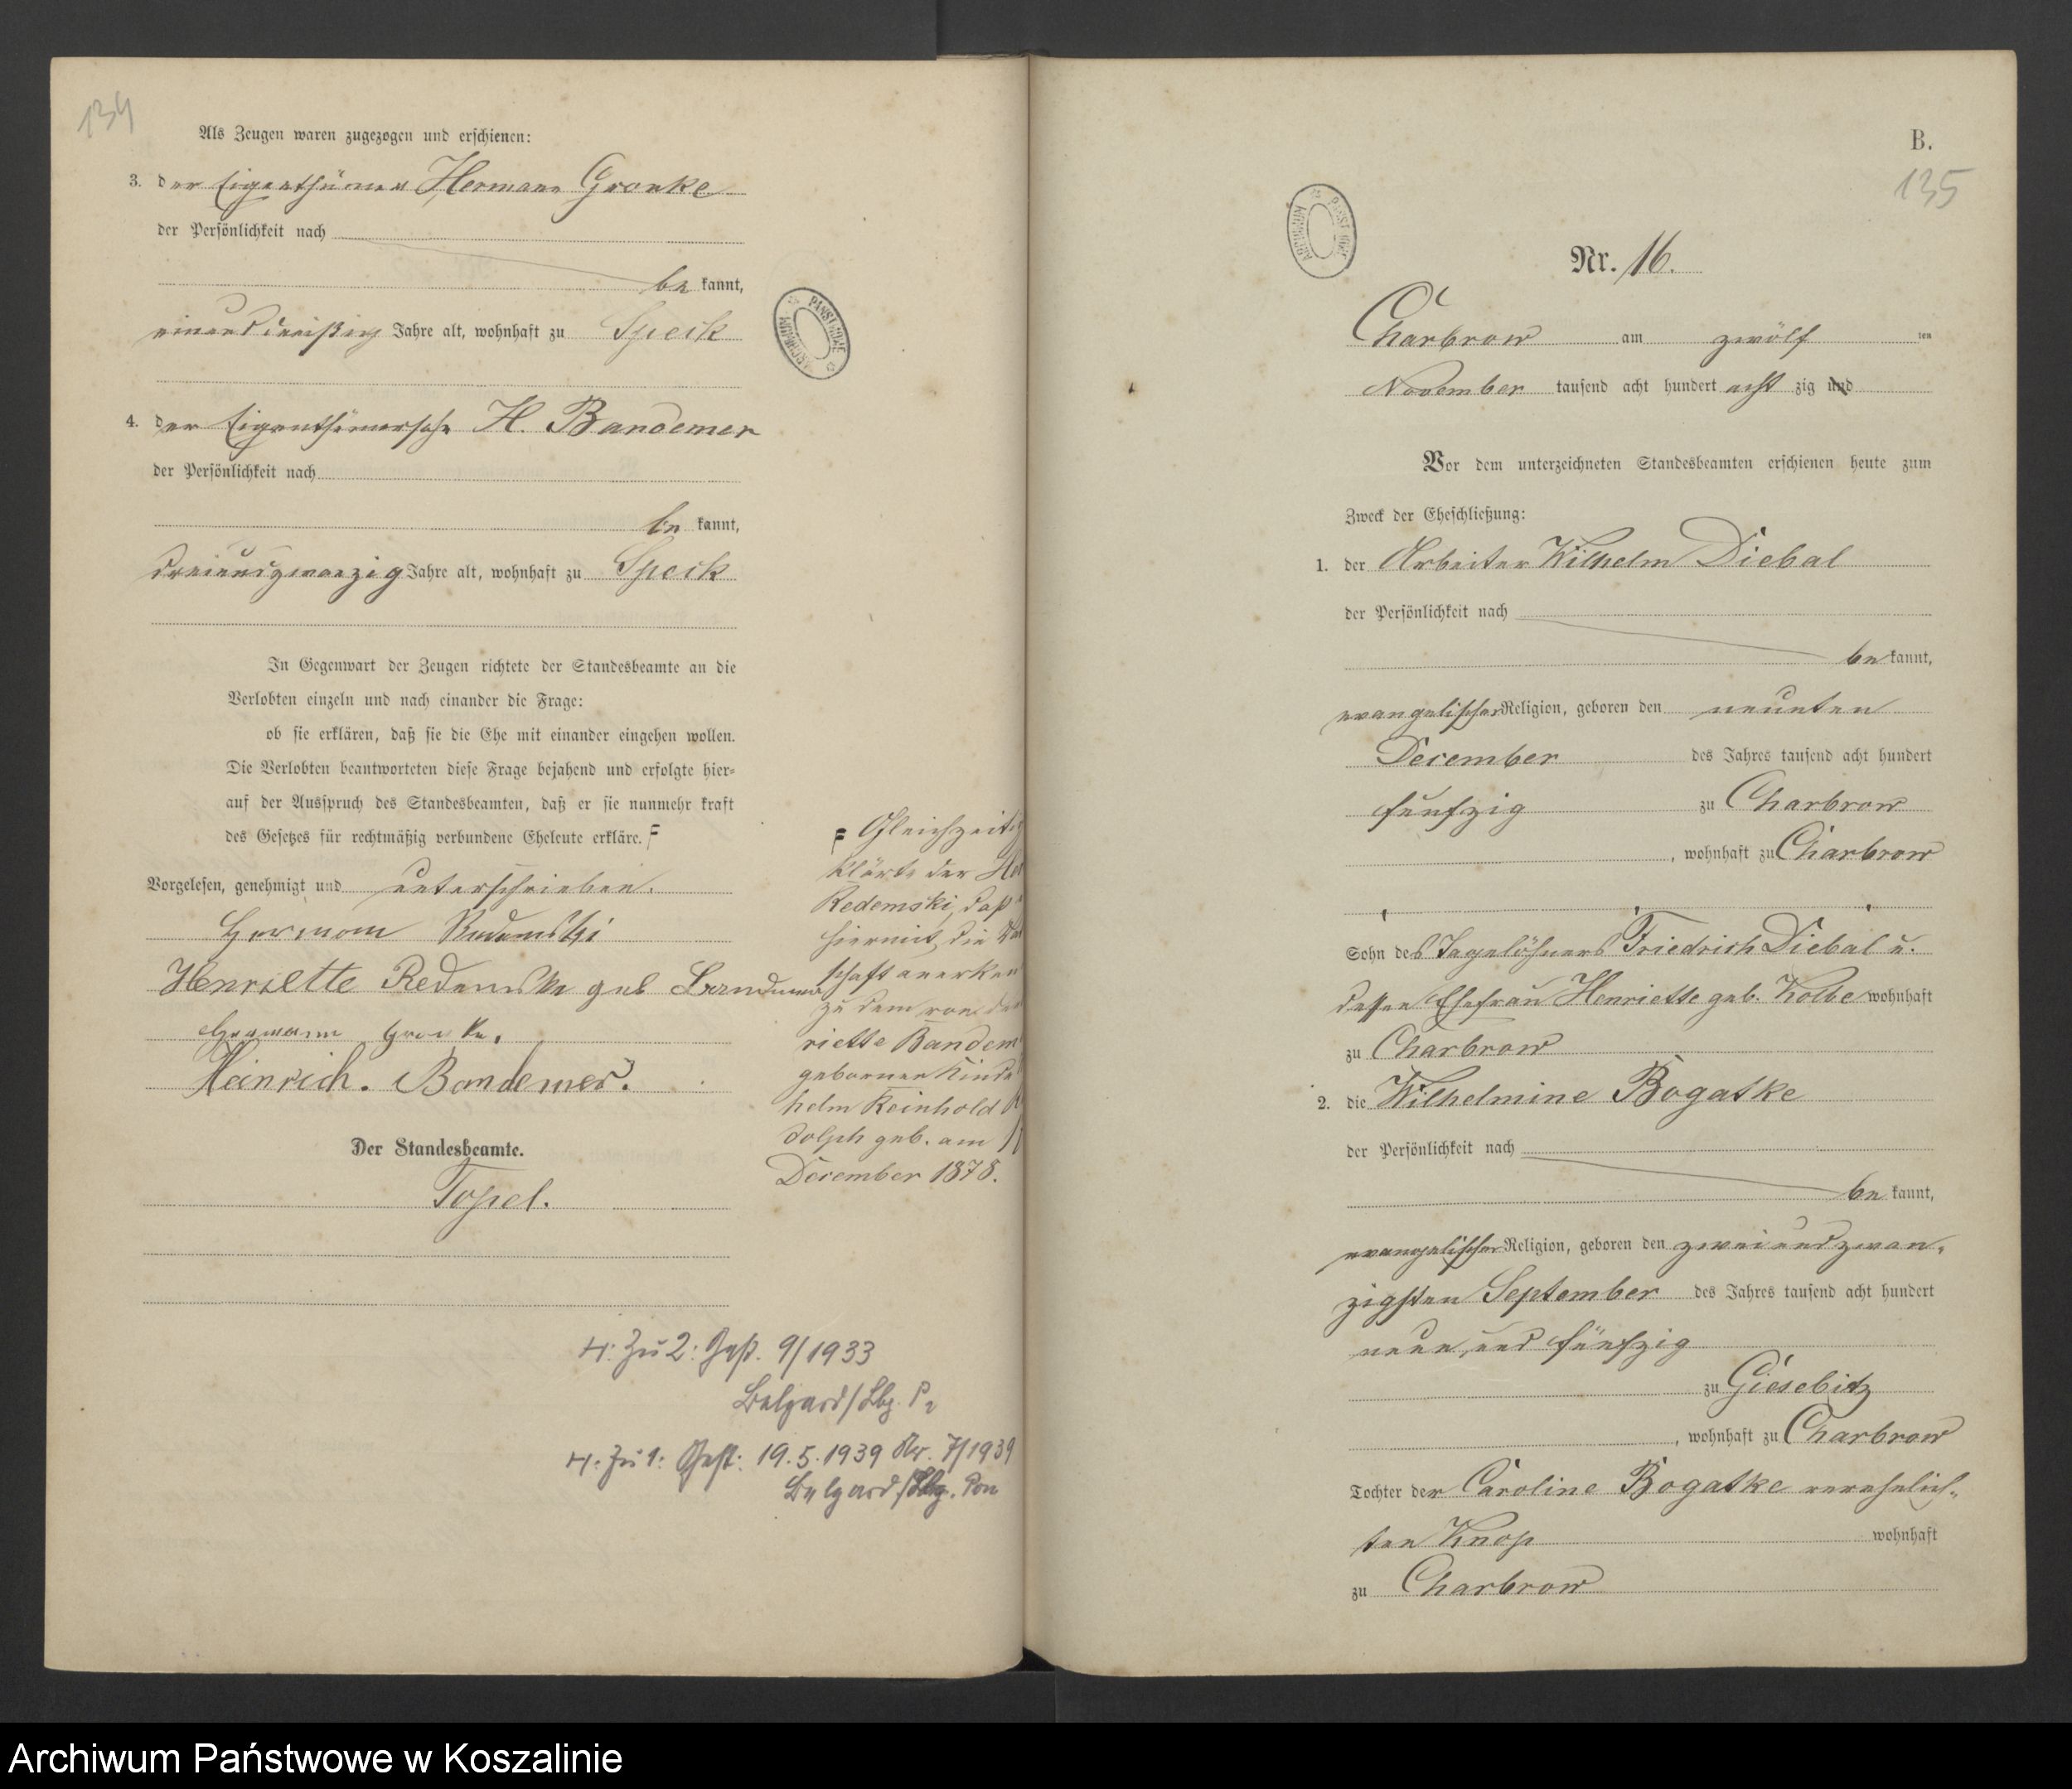 134
Als Zeugen waren zugezogen und erschienen:
3. der Eigenthümer Hermann Gronke
der Persönlichkeit nach
be kannt,
einunddreißig Jahre alt, wohnhaft zu Speck
4. der Eigenthümersohn H. Bandemer
der Persönlichkeit nach
be kannt,
dreiundzwanzig Jahre alt, wohnhaft zu Speck
In Gegenwart der Zeugen richtete der Standesbeamte an die
Verlobten einzeln und nach einander die Frage:
ob sie erklären, daß sie die Ehe mit einander eingehen wollen.
Die Verlobten beantworteten diese Frage bejahend und erfolgte hier=
auf der Ausspruch des Standesbeamten, daß er sie nunmehr kraft
des Gesetzes für rechtmäßig verbundene Eheleute erkläre.
Vorgelesen, genehmigt und unterschrieben.
Hermann Redemski
Henriette Redemski geb Bandemer
Hermann Gronke.
Heinrich. Bandemer.
Der Standesbeamte.
Topel.
Gleichzeitig
klärte der Her
Redemski, daß
hiermit, die Vat
schaft anerken
zu dem von der
riette Bandem
geborenen Kinde
helm Reinhold
dolph geb. am
December 1878.
H: Zu 2: Gest. 9/1933
Belgard/Lbg. P.
H: Zu 1: Gest: 19.5.1939 Nr. 7/1939
Belgard/Lbg. Pom
B.
135
Nr. 16.
Charbrow am zwölf ten
November tausend acht hundert acht zig und
Vor dem unterzeichneten Standesbeamten erschienen heute zum
Zweck der Eheschließung:
1. der Arbeiter Wilhelm Diebal
der Persönlichkeit nach
be kannt,
evangelischer Religion, geboren den neunten
December des Jahres tausend acht hundert
fünfzig zu Charbrow
, wohnhaft zu Charbrow
Sohn des Tagelöhners Friedrich Diebal u.
dessen Ehefrau Henriette geb. Kolbe wohnhaft
zu Charbrow
2. die Wilhelmine Bogatke
der Persönlichkeit nach
be kannt,
evangelischer Religion, geboren den zweiundzwan-
zigsten September des Jahres tausend acht hundert
neun und fünfzig
zu Giesebitz
, wohnhaft zu Charbrow
Tochter der Caroline Bogatke verehelich-
ten Knop wohnhaft
zu Charbrow
Archiwum Państwowe w Koszalinie